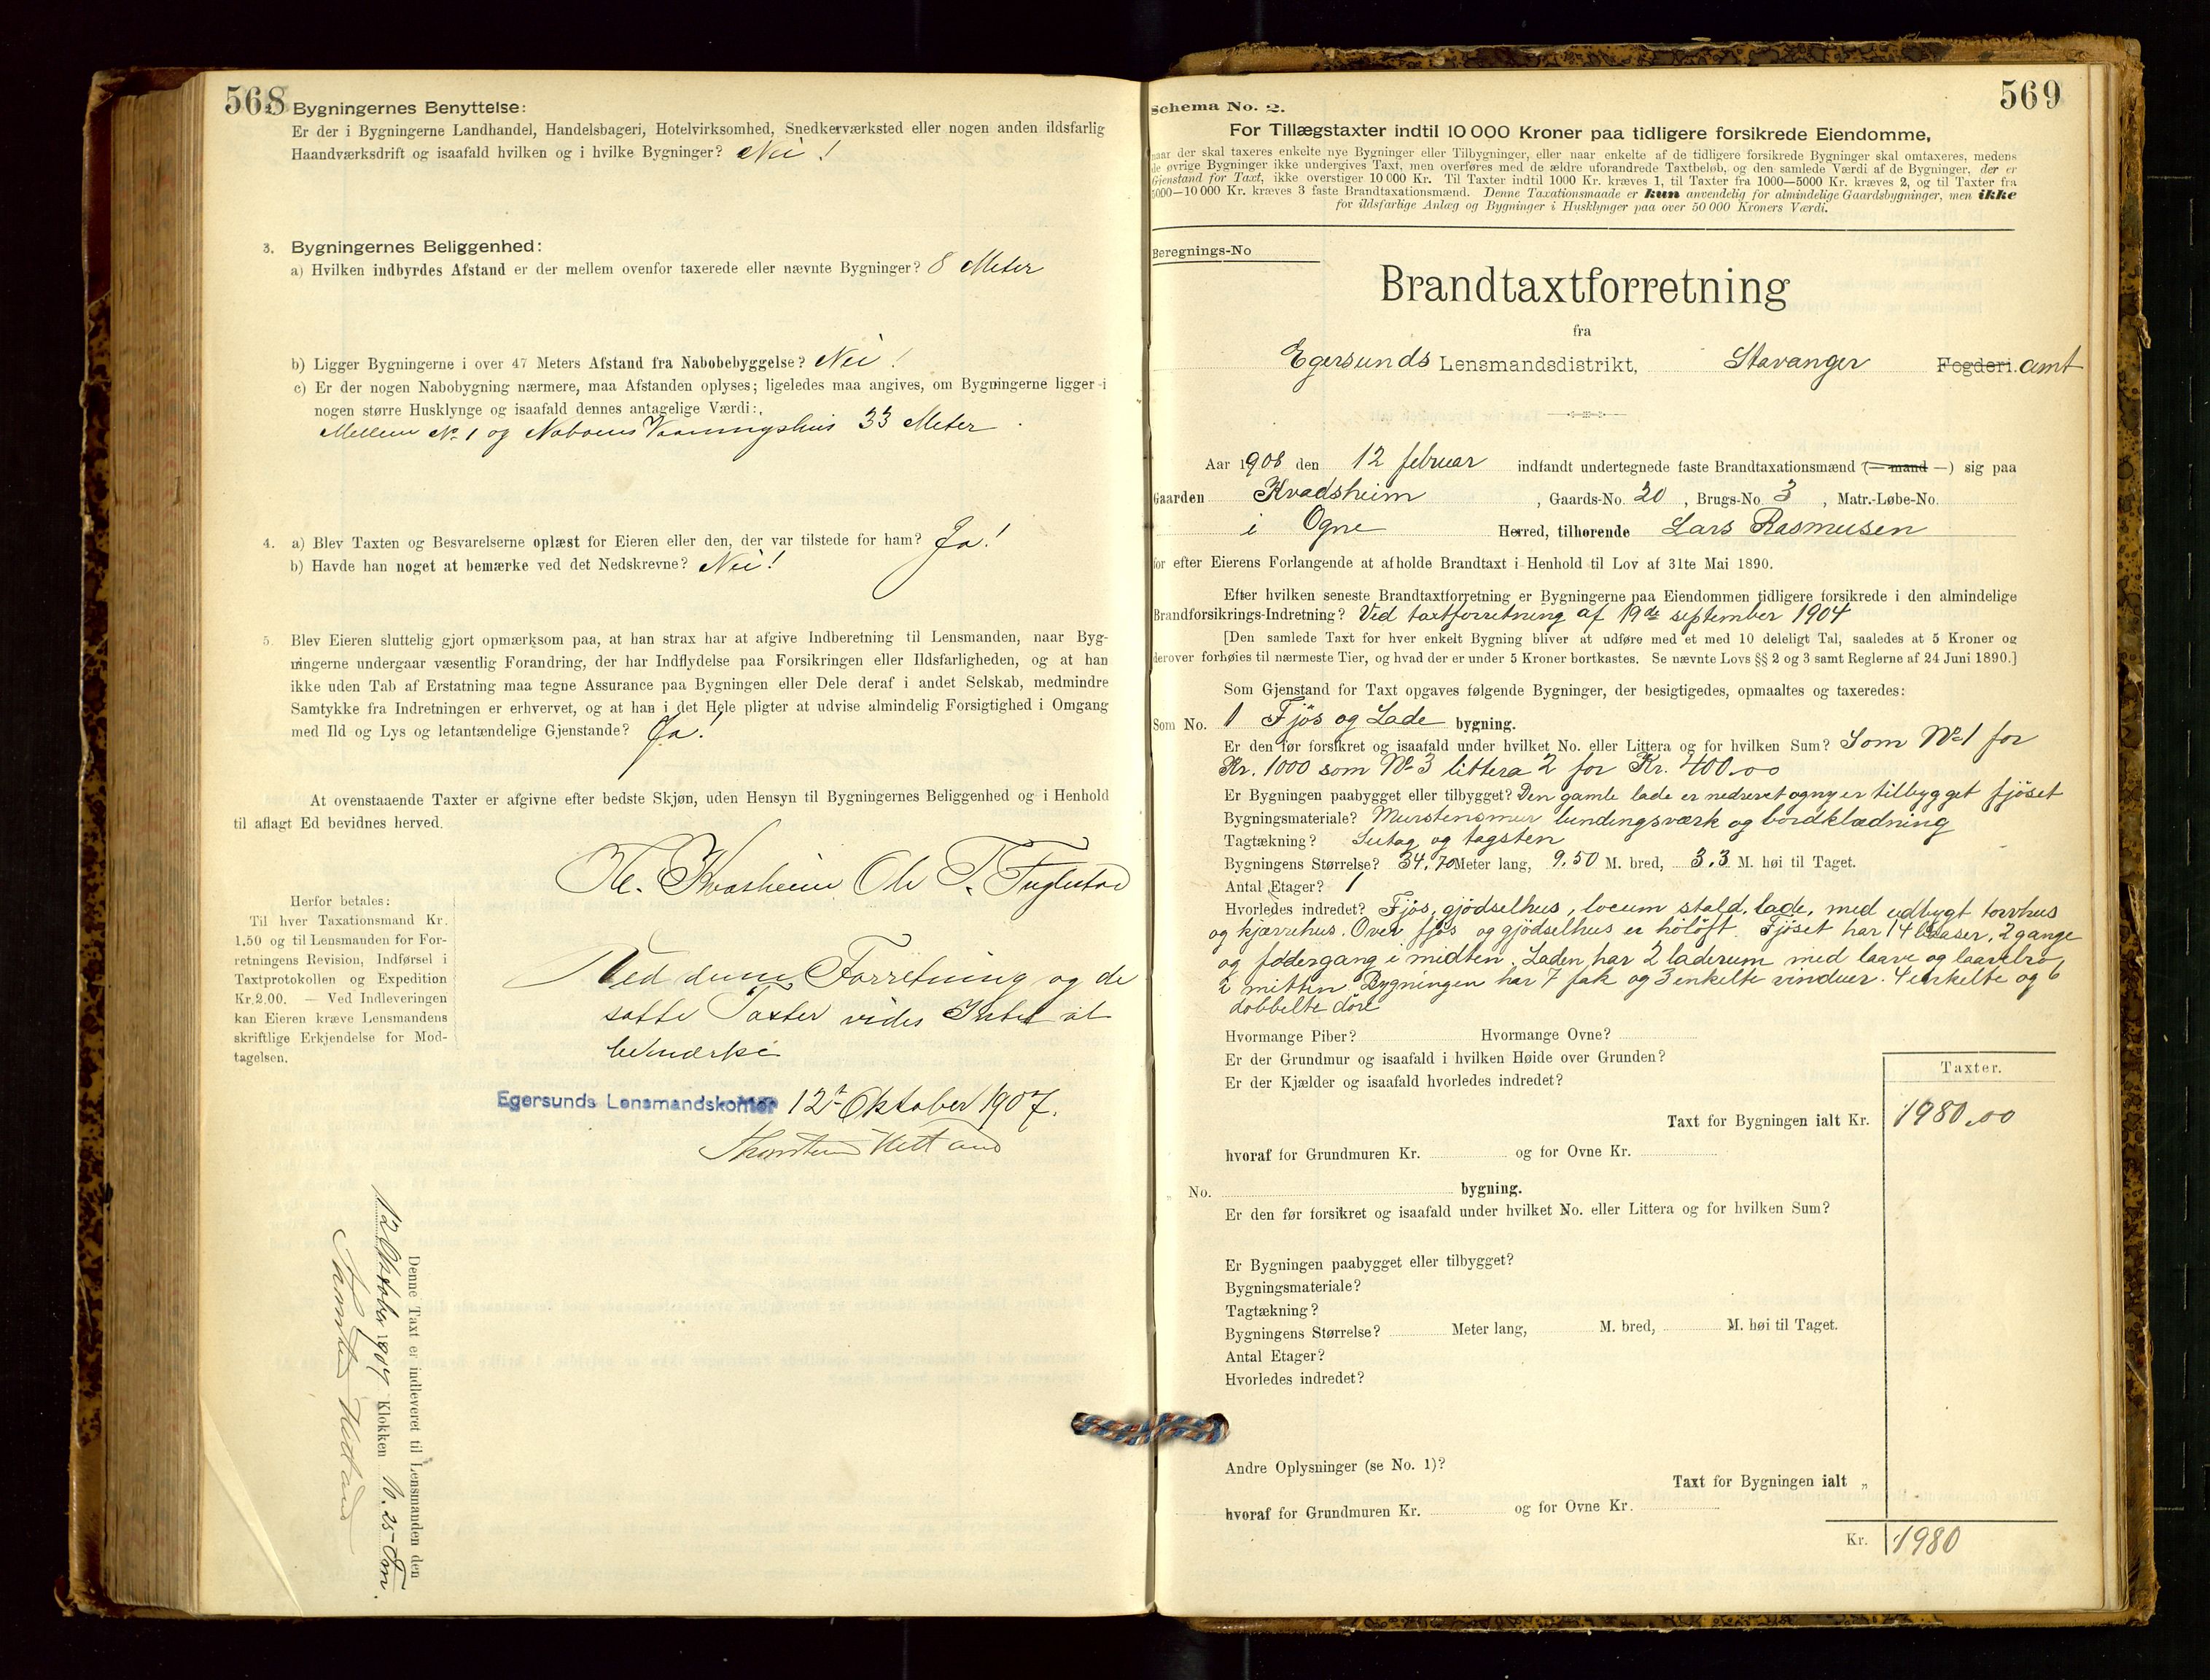 568
Bygningernes Benyttelse:
Er der i Bygningerne Landhandel, Handelsbageri, Hotelvirksomhed, Snedkerværksted eller nogen anden ildsfarlig
Haandværksdrift og isaafald hvilken og i hvilke Bygninger? Nei!
3. Bygningernes Beliggenhed:
a) Hvilken indbyrdes Afstand er der mellem ovenfor taxerede eller nævnte Bygninger? 8 Meter
b) Ligger Bygningerne i over 47 Meters Afstand fra Nabobebyggelse? Nei!
c) Er der nogen Nabobygning nærmere, maa Afstanden oplyses; ligeledes maa angives, om Bygningerne ligger i
nogen større Husklynge og isaafald dennes antagelige Værdi:
Mellem No 1 og Naboens Vaaningshus 33 Meter
4. a) Blev Taxten og Besvarelserne oplæst for Eieren eller den, der var tilstede for ham? Ja!
b) Havde han noget at bemærke ved det Nedskrevne? Nei!
5. Blev Eieren sluttelig gjort opmærksom paa, at han strax har at afgive Indberetning til Lensmanden, naar Byg-
ningerne undergaar væsentlig Forandring, der har Indflydelse paa Forsikringen eller Ildsfarligheden, og at han
ikke uden Tab af Erstatning maa tegne Assurance paa Bygningen eller Dele deraf i andet Selskab, medmindre
Samtykke fra Indretningen er erhvervet, og at han i det Hele pligter at udvise almindelig Forsigtighed i Omgang
med Ild og Lys og letantændelige Gjenstande? Ja!
At ovenstaaende Taxter er afgivne efter bedste Skjøn, uden Hensyn til Bygningernes Beliggenhed og i Henhold
til aflagt Ed bevidnes herved.
Kvasheim Ole T. Fuglestad
Herfor betales:
Til hver Taxationsmand Kr.
1.50 og til Lensmanden for For-
retningens Revision, Indførsel i
Taxtprotokollen og Expedition
Kr. 2.00. — Ved Indleveringen
kan Eieren kræve Lensmandens
skriftlige Erkjendelse for Mod-
tagelsen.
Ved denne Forretning og de
satte Taxter vides Intet at
bemærke
Egersunds Lensmandskontor 12t Oktober 1907.
Thorsten Hetland
Denne Taxt er indleveret til Lensmanden den
12 Oktober 1907 Klokken 10.25 Fm.
Thorsten Hetland
569
Schema No. 2.
For Tillægstaxter indtil 10 000 Kroner paa tidligere forsikrede Eiendomme,
naar der skal taxeres enkelte nye Bygninger eller Tilbygninger, eller naar enkelte af de tidligere forsikrede Bygninger skal omtaxeres, medens
de øvrige Bygninger ikke undergives Taxt, men overføres med de ældre uforandrede Taxtbeløb, og den samlede Værdi af de Bygninger, der er
Gjenstand for Taxt, ikke overstiger 10 000 Kr. Til Taxter indtil 1000 Kr. kræves 1, til Taxter fra 1000—5000 Kr. kræves 2, og til Taxter fra
5000—10 000 Kr. kræves 3 faste Brandtaxationsmænd. Denne Taxationsmaade er kun anvendelig for almindelige Gaardsbygninger, men ikke
for ildsfarlige Anlæg og Bygninger i Husklynger paa over 50 000 Kroners Værdi.
Beregnings-No
Brandtaxtforretning
fra
Egersunds Lensmandsdistrikt, Stavanger Fogderi. amt
Aar 1908 den 12 februar indfandt undertegnede faste Brandtaxationsmænd (— mand —) sig paa
Gaarden Kvadsheim, Gaards-No. 20, Brugs-No. 3, Matr.-Løbe-No.
i Ogne Herred, tilhørende Lars Rasmusen
for efter Eierens Forlangende at afholde Brandtaxt i Henhold til Lov af 31te Mai 1890.
Efter hvilken seneste Brandtaxtforretning er Bygningerne paa Eiendommen tidligere forsikrede i den almindelige
Brandforsikrings-Indretning? Ved taxtforretning af 19de september 1904
[Den samlede Taxt for hver enkelt Bygning bliver at udføre med et med 10 deleligt Tal, saaledes at 5 Kroner og
derover forhøies til nærmeste Tier, og hvad der er under 5 Kroner bortkastes. Se nævnte Lovs §§ 2 og 3 samt Reglerne af 24 Juni 1890.]
Som Gjenstand for Taxt opgaves følgende Bygninger, der besigtigedes, opmaaltes og taxeredes:
Som No. 1 Fjös og Lade bygning.
Er den før forsikret og isaafald under hvilket No. eller Littera og for hvilken Sum? Som No 1 for
Kr. 1000 som No 3 littera 2 for Kr. 400.00
Er Bygningen paabygget eller tilbygget? Den gamle lade er nedrevet og ny er tilbygget fjöset
Bygningsmateriale? Murstensmur bundingsværk og bordklædning
Tagtækning? Sutag og tagsten
Bygningens Størrelse? 34.70 Meter lang, 9.50 M. bred, 3.3 M. høi til Taget.
Antal Etager? 1
Hvorledes indredet? Fjös, gjödselhus, locum stald, lade, med udbygt torvhus
og kjærrehus. Over fjös og gjödselhus er hölöft. Fjöset har 14 baaser, 2 gange
og fodergang i midten. Laden har 2 laderum med laave og laavebro
i mitten. Bygningen har 7 fak og 3 enkelte vinduer. 4 enkelte og 6
dobbelte döre
Hvormange Piber? Hvormange Ovne?
Er der Grundmur og isaafald i hvilken Høide over Grunden?
Er der Kjælder og isaafald hvorledes indredet?
Taxter.
Taxt for Bygningen ialt Kr. 1980.00
hvoraf for Grundmuren Kr. og for Ovne Kr.
" No. bygning.
Er den før forsikret og isaafald under hvilket No. eller Littera og for hvilken Sum?
Er Bygningen paabygget eller tilbygget?
Bygningsmateriale?
Tagtækning?
Bygningens Størrelse? Meter lang, M. bred, M. høi til Taget.
Antal Etager?
Hvorledes indredet?
Andre Oplysninger (se No. 1)?
Taxt for Bygningen ialt "
hvoraf for Grundmuren Kr. og for Ovne Kr.
Kr. 1980